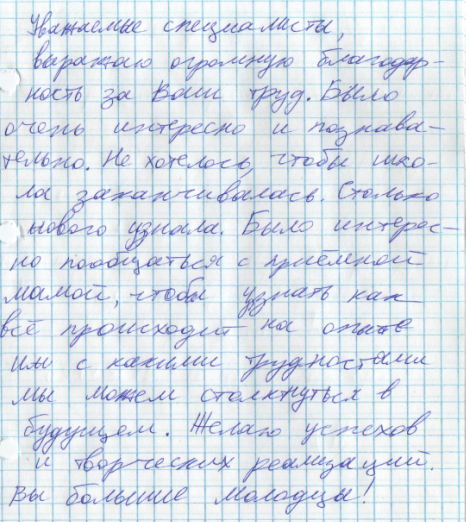 Уважаемые специалисты,
выражаю огромную благодар-
ность за Ваш труд. Было
очень интересно и познава-
тельно. Не хотелось, чтобы шко-
ла заканчивалась. Столько
нового узнала. Было интерес-
но пообщаться с приёмной
мамой, чтобы узнать как
всё происходит на опыте
или с какими трудностями
мы можем столкнуться в
будущем. Желаю успехов
и творческих реализаций.
Вы большие молодцы!